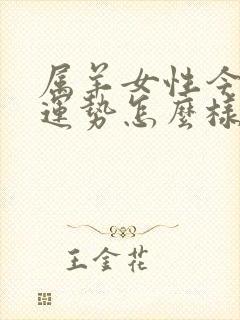 属羊女性今
運勢怎麼樣
王金花